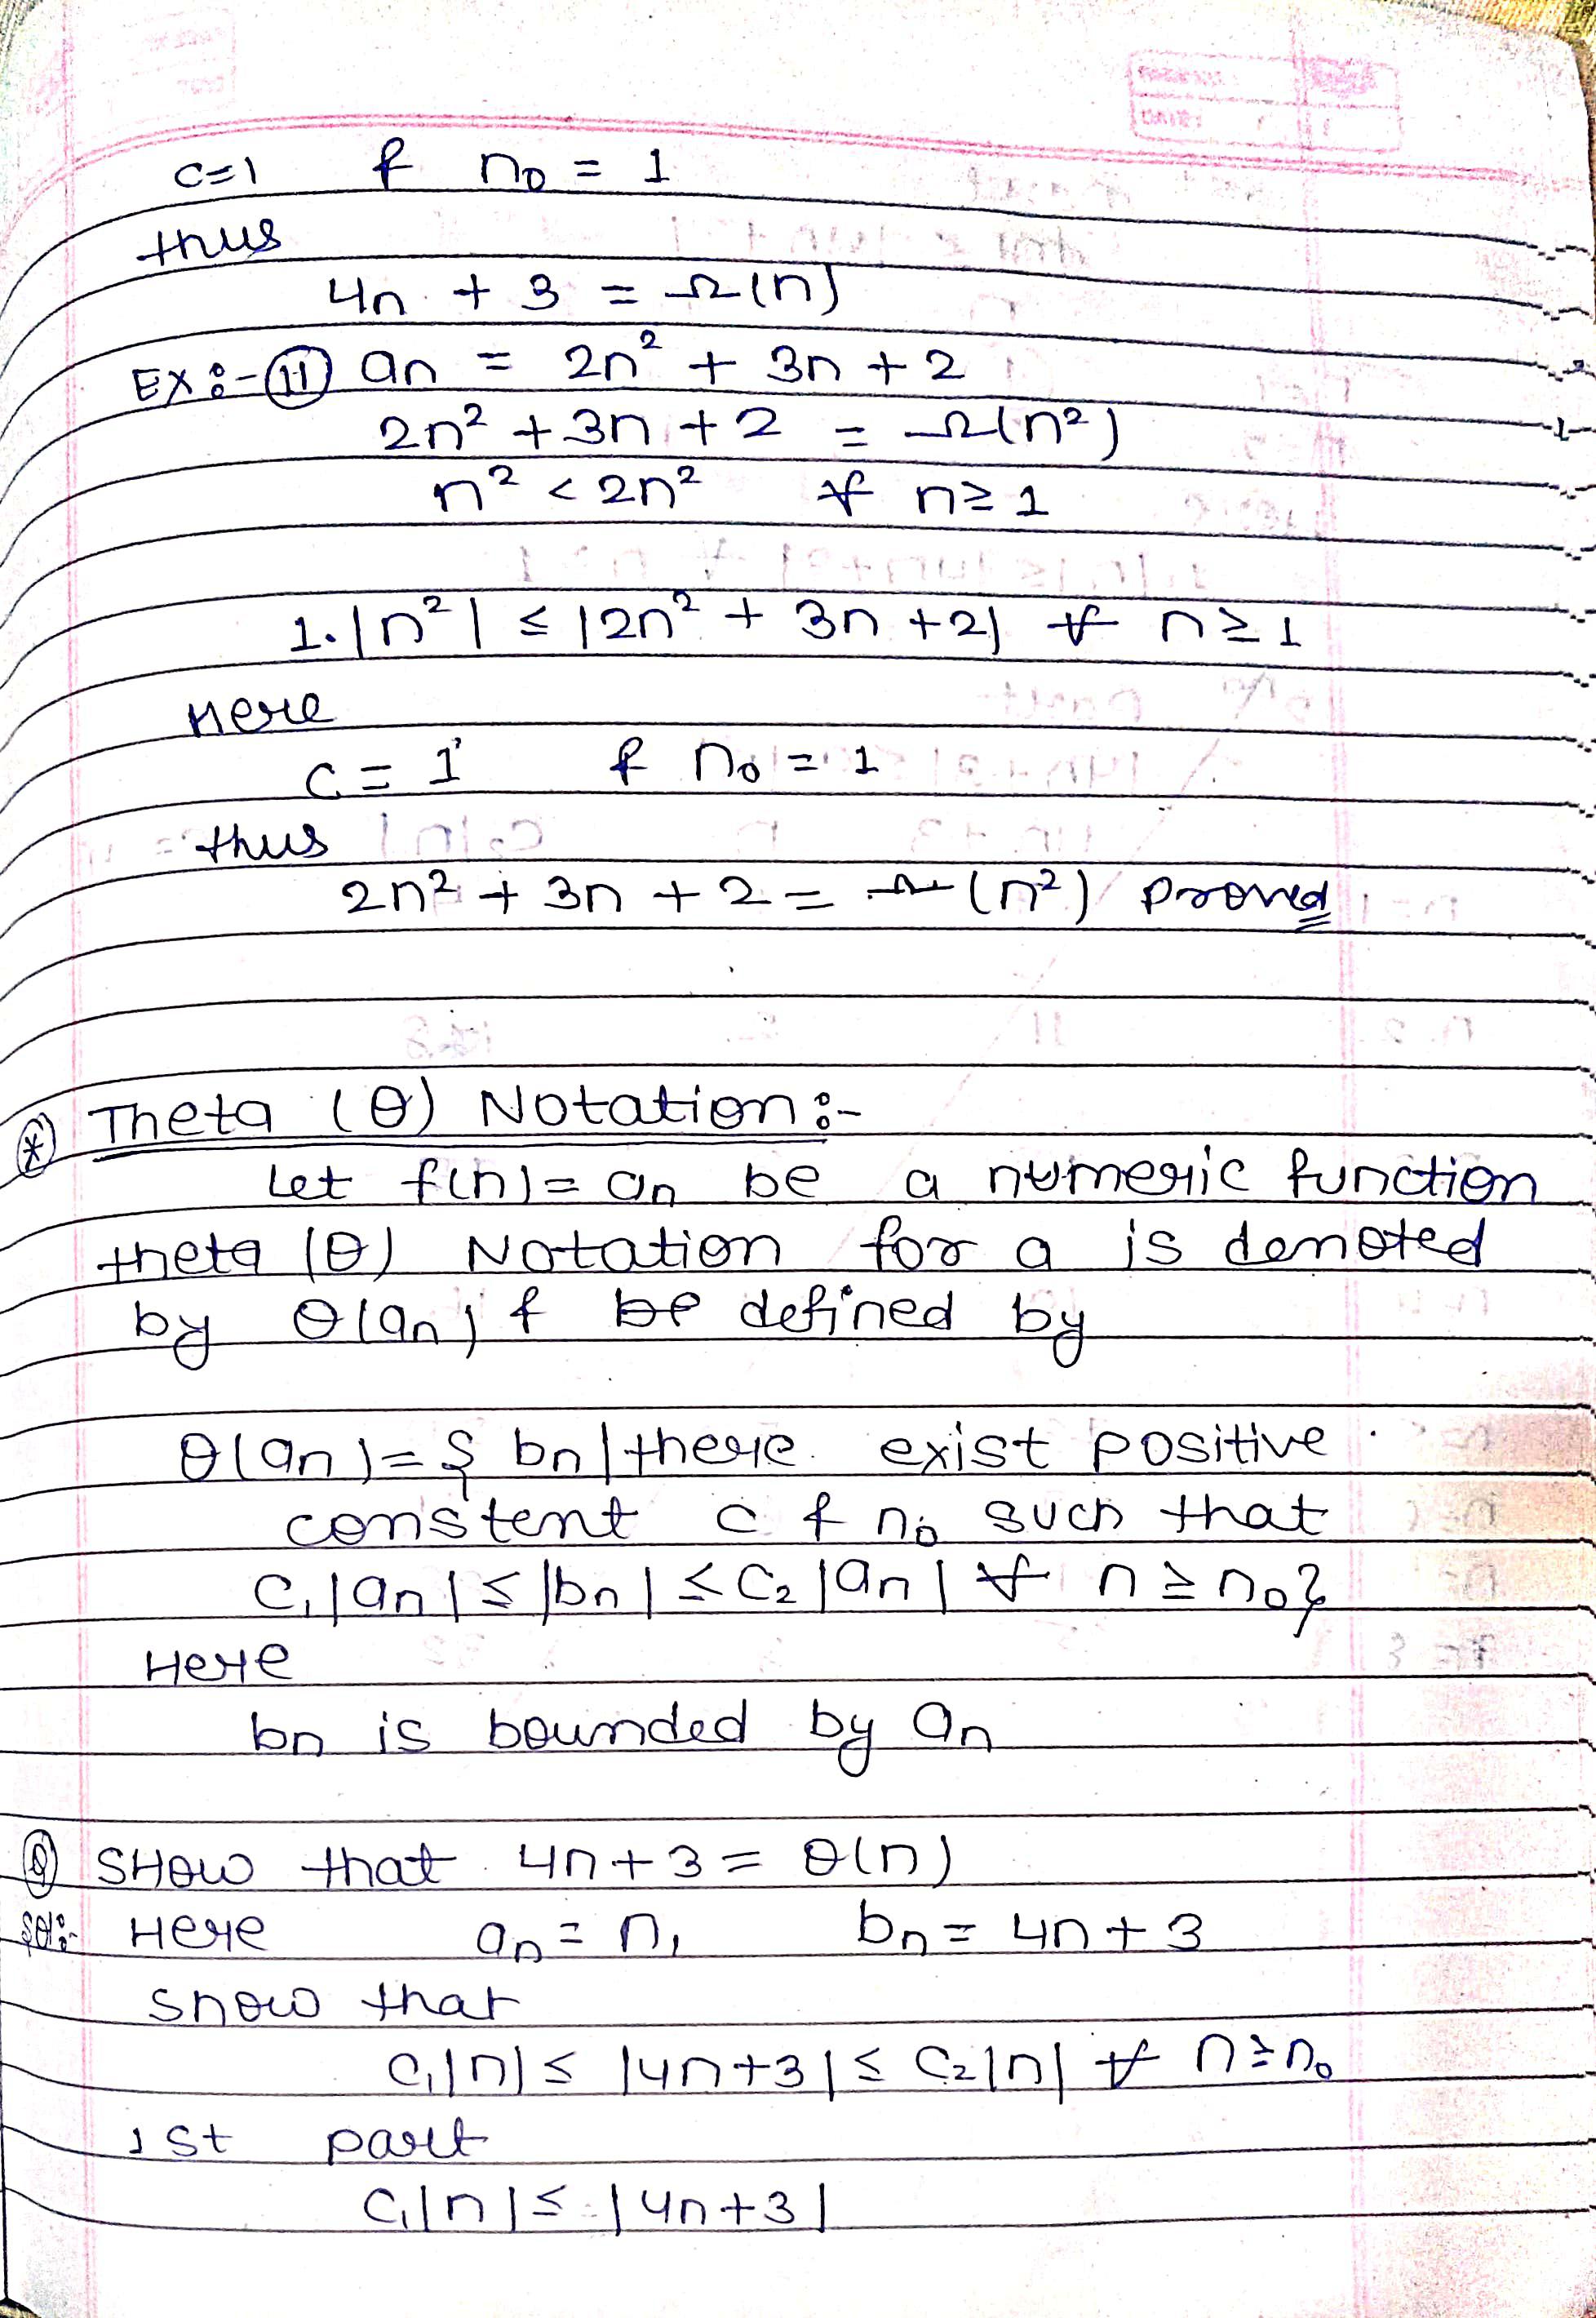 c=1 & n₀ = 1
thus
4n + 3 = Ω(n)
EX:- (11) an = 2n² + 3n + 2
2n² + 3n + 2 = Ω(n²)
n² < 2n² ∀ n ≥ 1
1.|n²| ≤ |2n² + 3n + 2| ∀ n ≥ 1
Here
C = 1 & n₀ = 1
thus
2n² + 3n + 2 = Ω(n²) Proved
Theta (θ) Notation:-
Let f(n) = an be a numeric function
theta (θ) Notation for a is denoted
by θ(an) & be defined by
θ(an) = { bn | there exist positive
constent c & n₀ such that
C₁|an| ≤ |bn| ≤ C₂|an| ∀ n ≥ n₀}
Here
bn is bounded by an
Q SHOW that 4n + 3 = θ(n)
Sol:- Here an = n, bn = 4n + 3
Show that
C₁|n| ≤ |4n+3| ≤ C₂|n| ∀ n ≥ n₀
1st part
C₁|n| ≤ |4n+3|